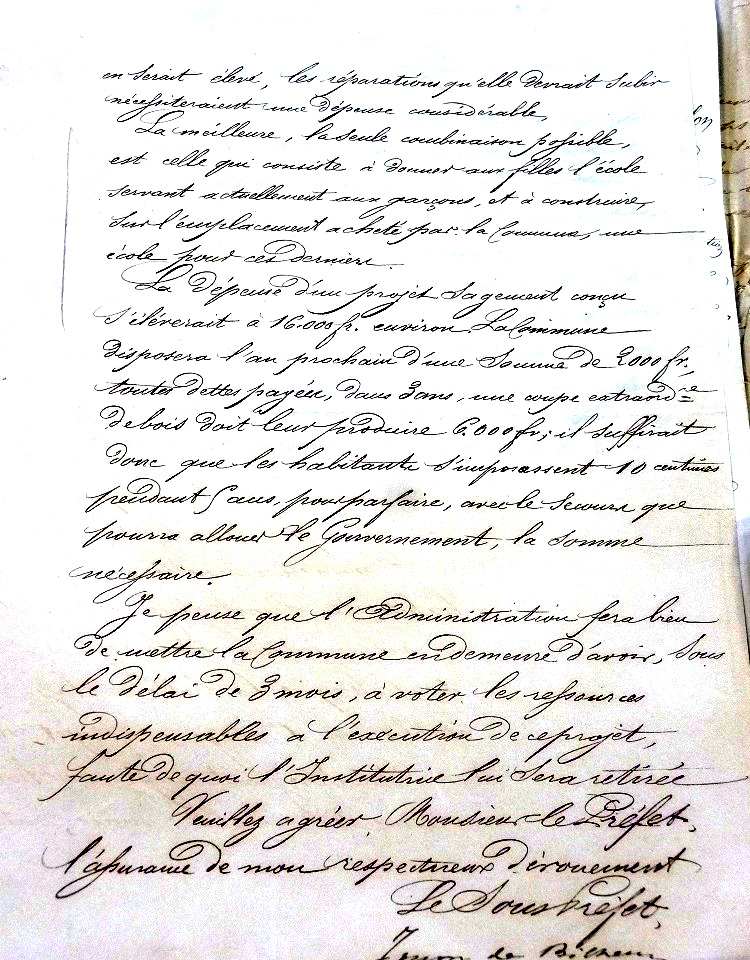 en serait élevé, les réparations qu'elle devrait subir
nécessiteraient une dépense considérable,
La meilleure, la seule combinaison possible,
est celle qui consiste à donner aux filles l'école
servant actuellement aux garçons, et à construire,
sur l'emplacement acheté par la Commune, une
école pour ces derniers.
La dépense d'un projet sagement conçu
s'élèverait à 16.000 fr. environ. La Commune
disposera l'an prochain d'une somme de 2000 fr.,
toutes dettes payées, dans 3 ans, une coupe extraord.re
de bois doit leur produire 6.000 fr; il suffirait
donc que les habitants s'imposassent 10 centimes
pendant 5 ans, pour parfaire, avec le secours que
pourra allouer le Gouvernement, la somme
nécessaire.
Je pense que l'Administration fera bien
de mettre la Commune en demeure d'avoir, sous
le délai de 3 mois, à voter les ressources
indispensables à l'exécution de ce projet,
faute de quoi l'Institutrice lui sera retirée
Veuillez agréer Monsieur le Préfet,
l'assurance de mon respectueux dévouement
Le Sous Préfet,